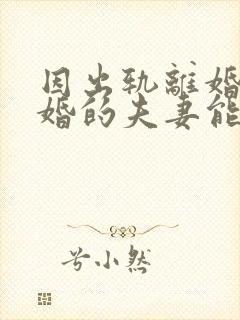 因出轨離婚
婚的夫妻能
兮小然